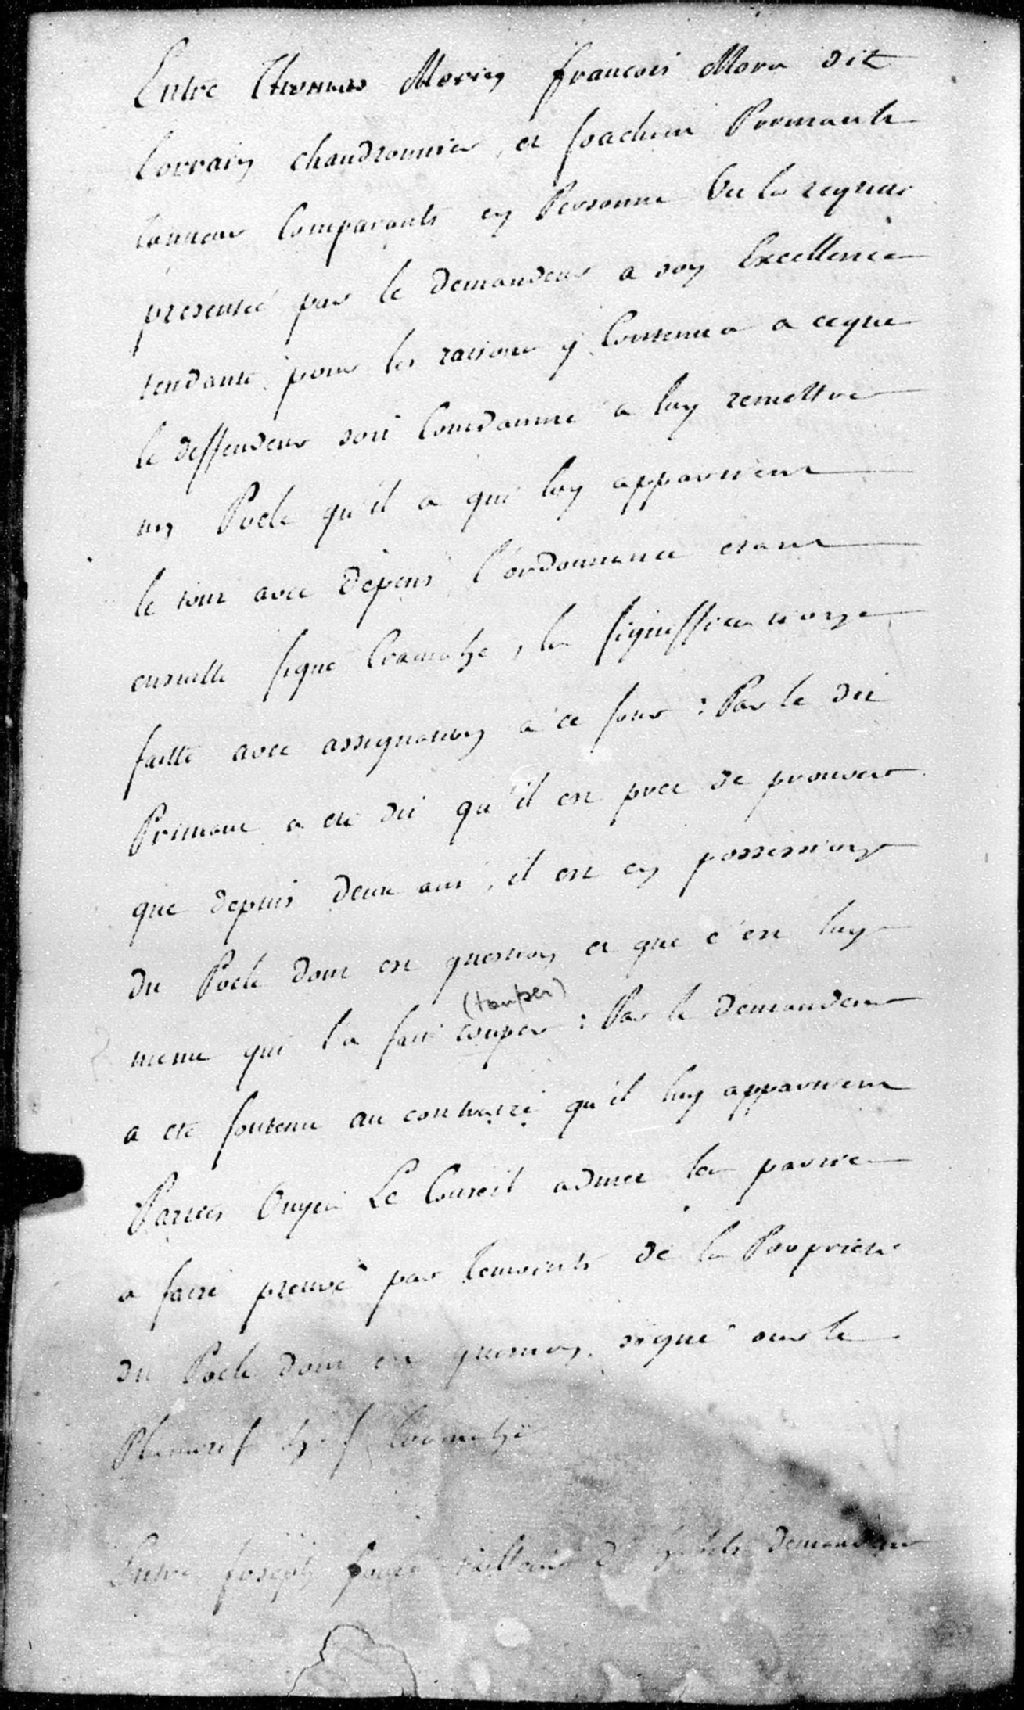 Entre Thomas Morin francois More dit
lorrain chaudronnier, et Joachim Primault
tanneur Comparants en Personne Vu la requete
presentée par le demandeur a son Excellence
tendante, pour les raisons y Contenues a ceque
le deffendeur soit Condamné a luy remettre
un Poele qu'il a qui luy appartient
le tout avec depens l'ordonnance etant
ensuitte signé Cramahe, la signiffication
faitte avec assignation a ce jour : Par le dit
Primaut a été dit qu'il est pret de prouver
que depuis deux ans, il est en possession
du Poele dont est question et que c'est luy
(tauper)
meme qui l'a fait couper : Par le demandeur
a eté soutenu au contraire qu'il luy appartient
Parties Ouyes Le Conseil admet les parties
a faire preuve par temoints de la Propriété
du Poele dont est question, signé sur le
Plumitif h. f. Cramahé
Entre Joseph tailleur d'habits demandeur